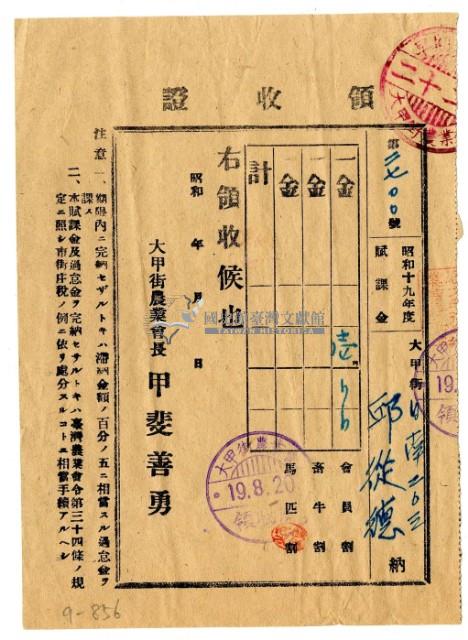 領收證
第二七〇〇號
昭和十九年度
賦課金
大甲街日南二〇三
邱從德 納
一金 壹円〇〇 會員割
一金 畜牛割
一金 馬匹割
計
右領收候也
昭和 年 月 日
大甲街農業會長 甲斐善勇
注意
一、期限內ニ完納セザルトキハ滯納金額ノ百分ノ五ニ相當スル過怠金ヲ課ス
二、本賦課金及過怠金ヲ完納セザルトキハ臺灣農業會令第三十四條ノ規定ニ照シ市街庄稅ノ例ニ依リ處分スルコトニ相當手續アルヘシ
大甲街農業
19.8.20
領收
大甲
19.
領
二十二
大甲街農業
國史館臺灣文獻館
TAIWAN HISTORICA
9-856